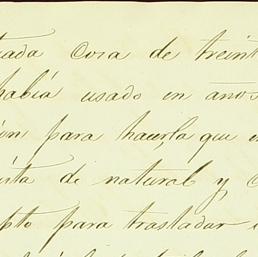 tuada cosa de treint
había usado en ano
ón para hacerla que
ista de natural y
pto para trasladar